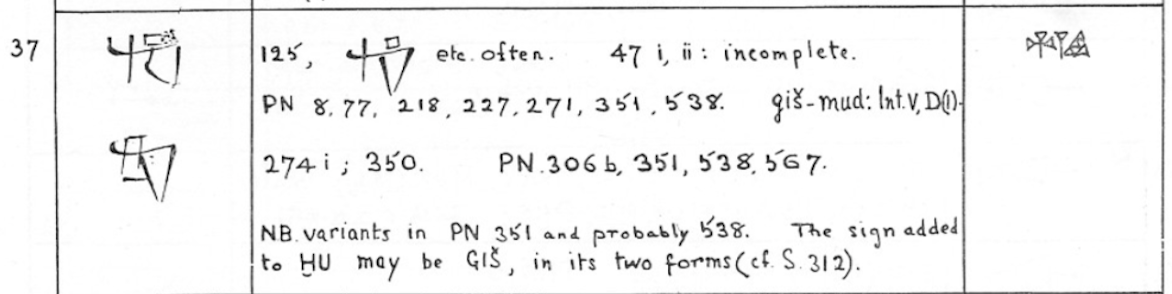 37 125, etc. often. 47 i, ii : incomplete.
PN 8, 77, 218, 227, 271, 351, 538. giš-mud: Int. V, D(1).
274 i ; 350. PN. 306 b, 351, 538, 567.
NB. variants in PN 351 and probably 538. The sign added
to ḪU may be GIŠ, in its two forms (cf. S. 312).